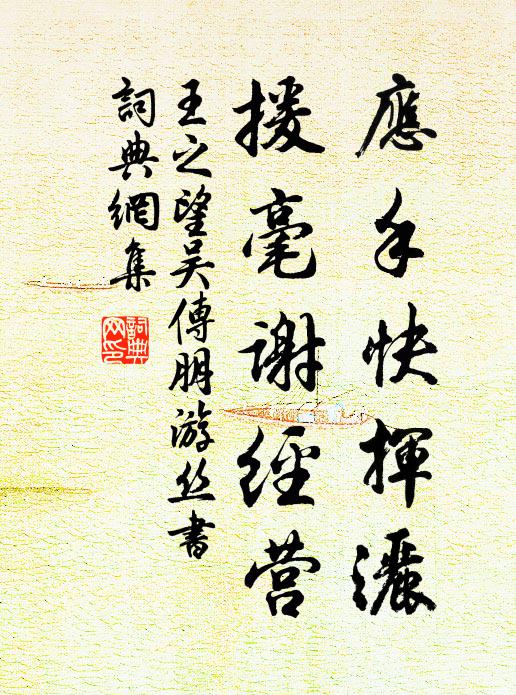 應手快揮灑
援毫謝經营
王之望吴傅朋游丝書
詞典網集
詞典网印